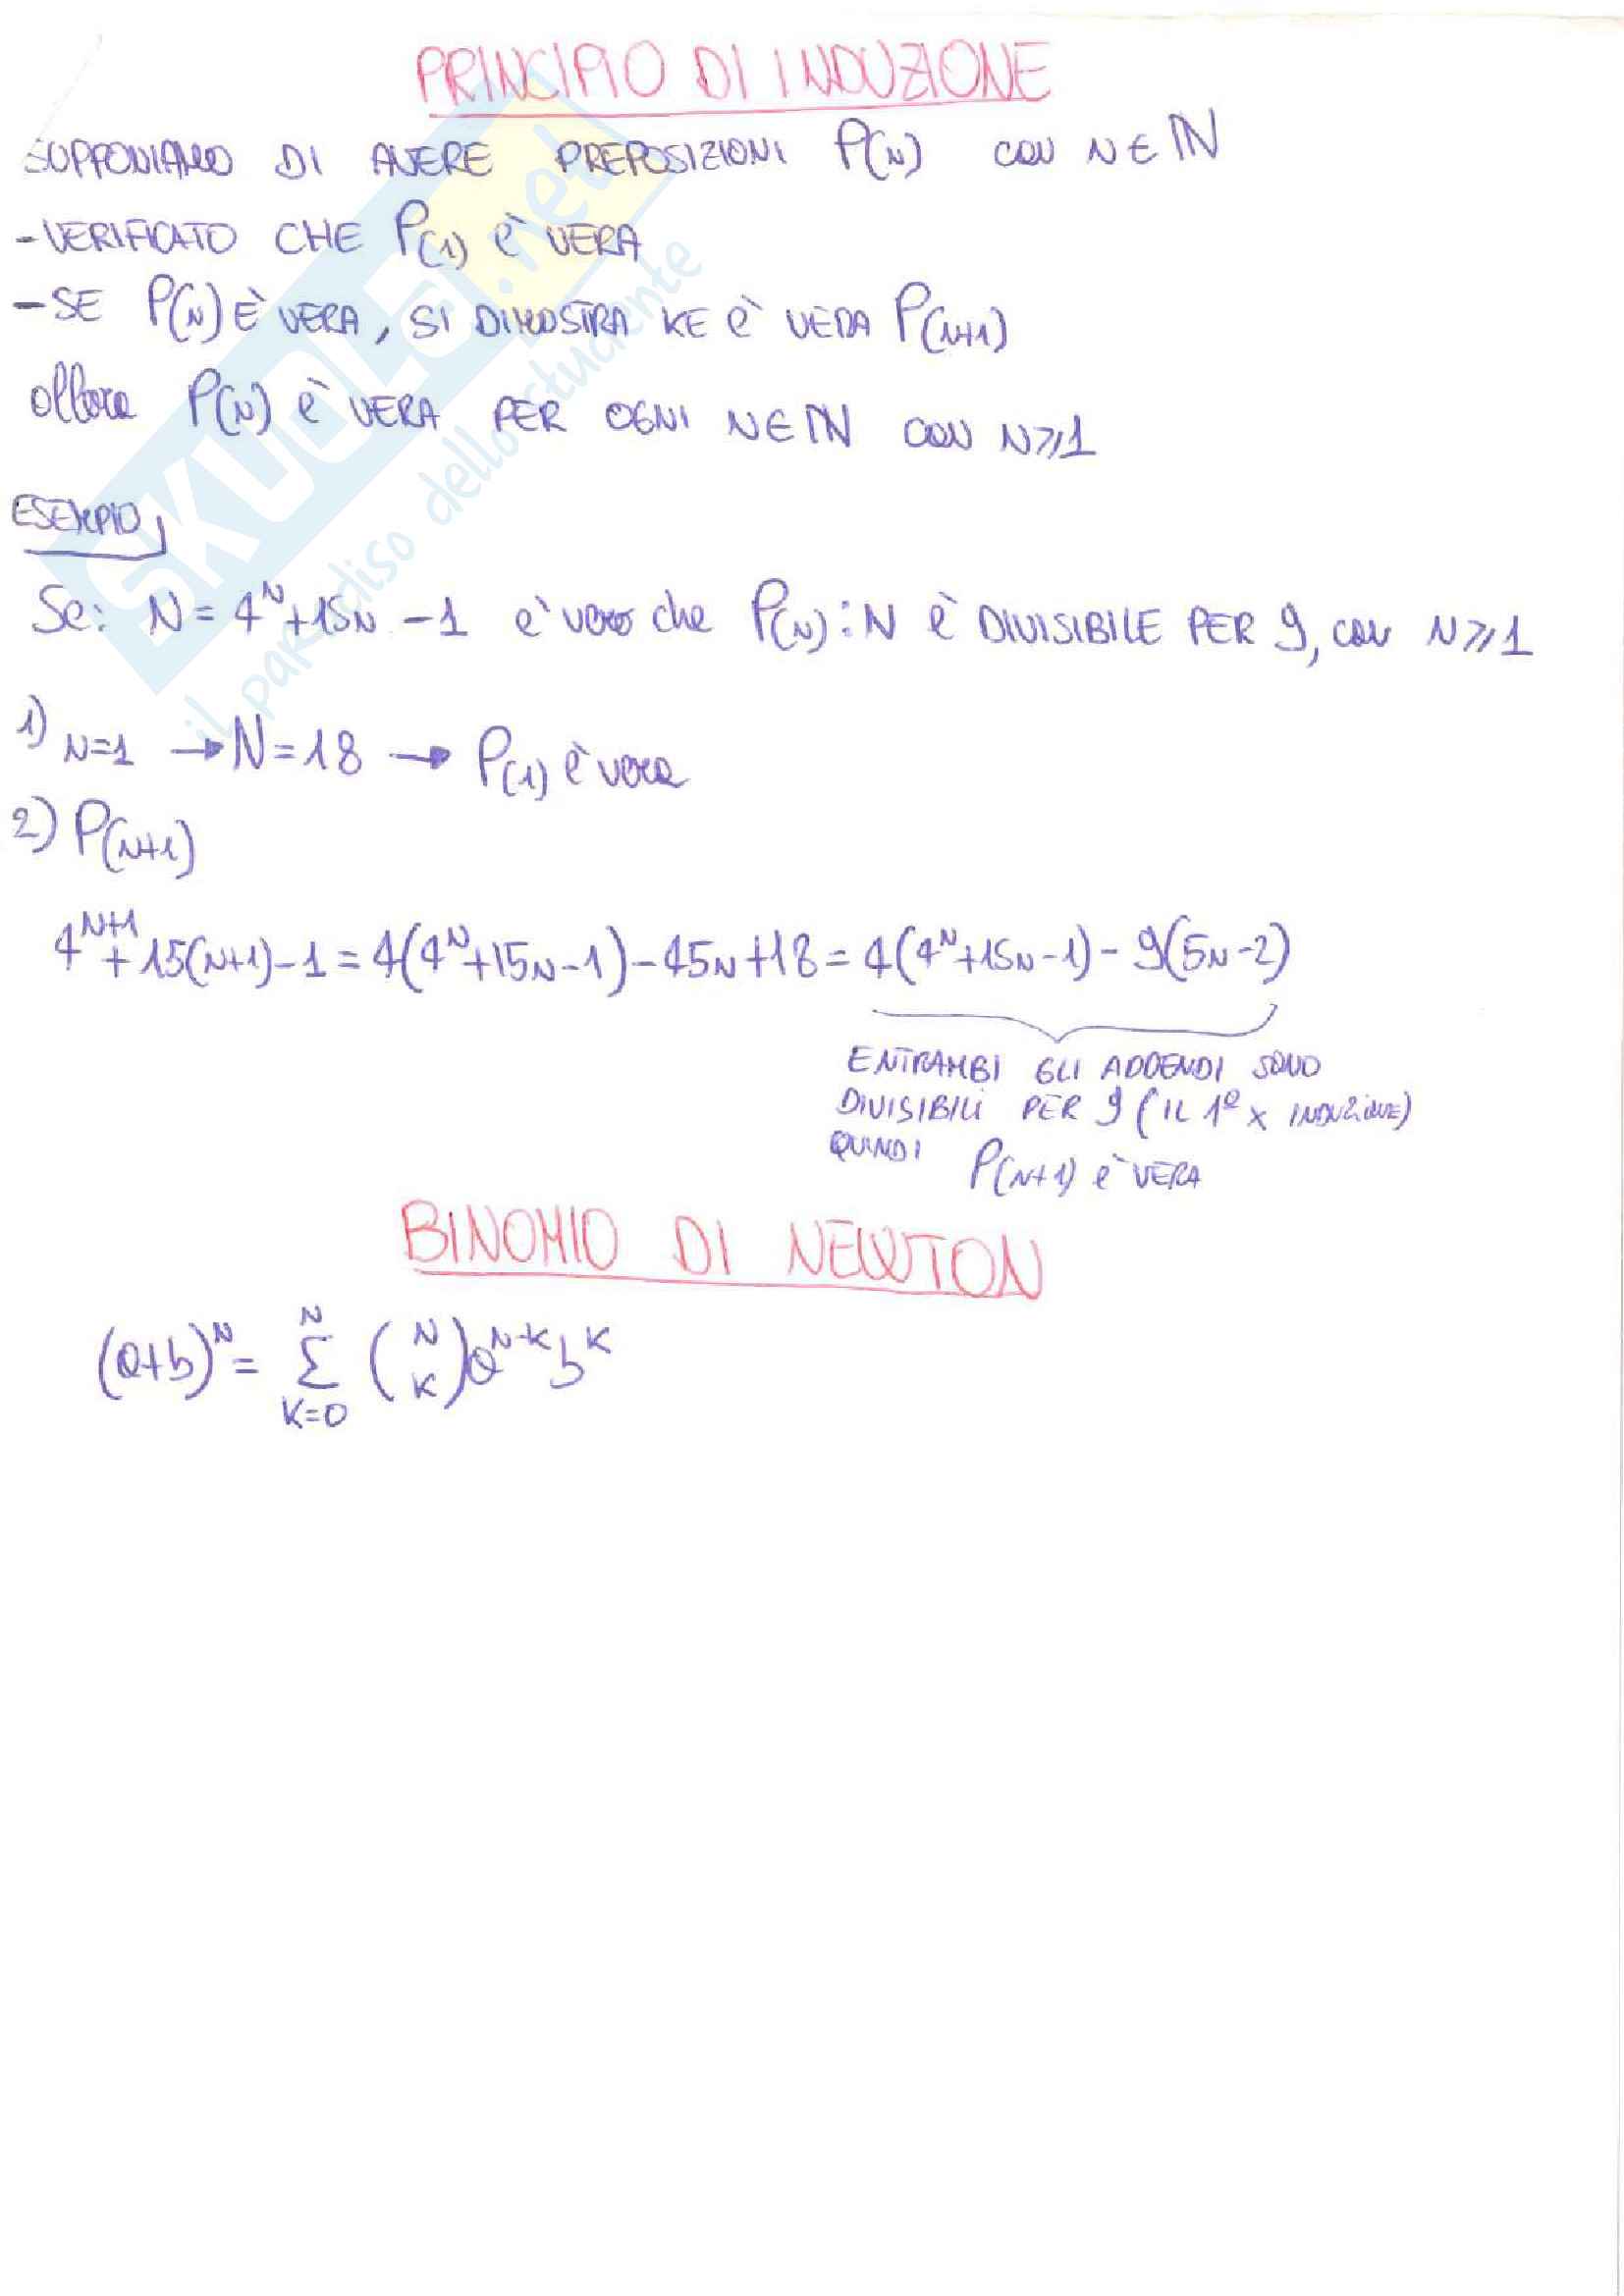 PRINCIPIO DI INDUZIONE
SUPPONIAMO DI AVERE PREPOSIZIONI P(N) CON N ∈ ℕ
- VERIFICATO CHE P(1) È VERA
- SE P(N) È VERA, SI DIMOSTRA KE È VERA P(N+1)
allora P(N) È VERA PER OGNI N ∈ ℕ CON N ⩾ 1
ESEMPIO
Se: N = 4^N + 15N - 1 è vero che P(N): N È DIVISIBILE PER 9, CON N ⩾ 1
1) N=1 → N = 18 → P(1) è vera
2) P(N+1)
4^{N+1} + 15(N+1) - 1 = 4(4^N + 15N - 1) - 45N + 18 = 4(4^N + 15N - 1) - 9(5N - 2)
ENTRAMBI GLI ADDENDI SONO
DIVISIBILI PER 9 (IL 1º X INDUZIONE)
QUINDI P(N+1) È VERA
BINOMIO DI NEWTON
(a+b)^N = Σ_{K=0}^{N} (N K) a^{N-K} b^K
SKUOLA.net
il paradiso dello studente